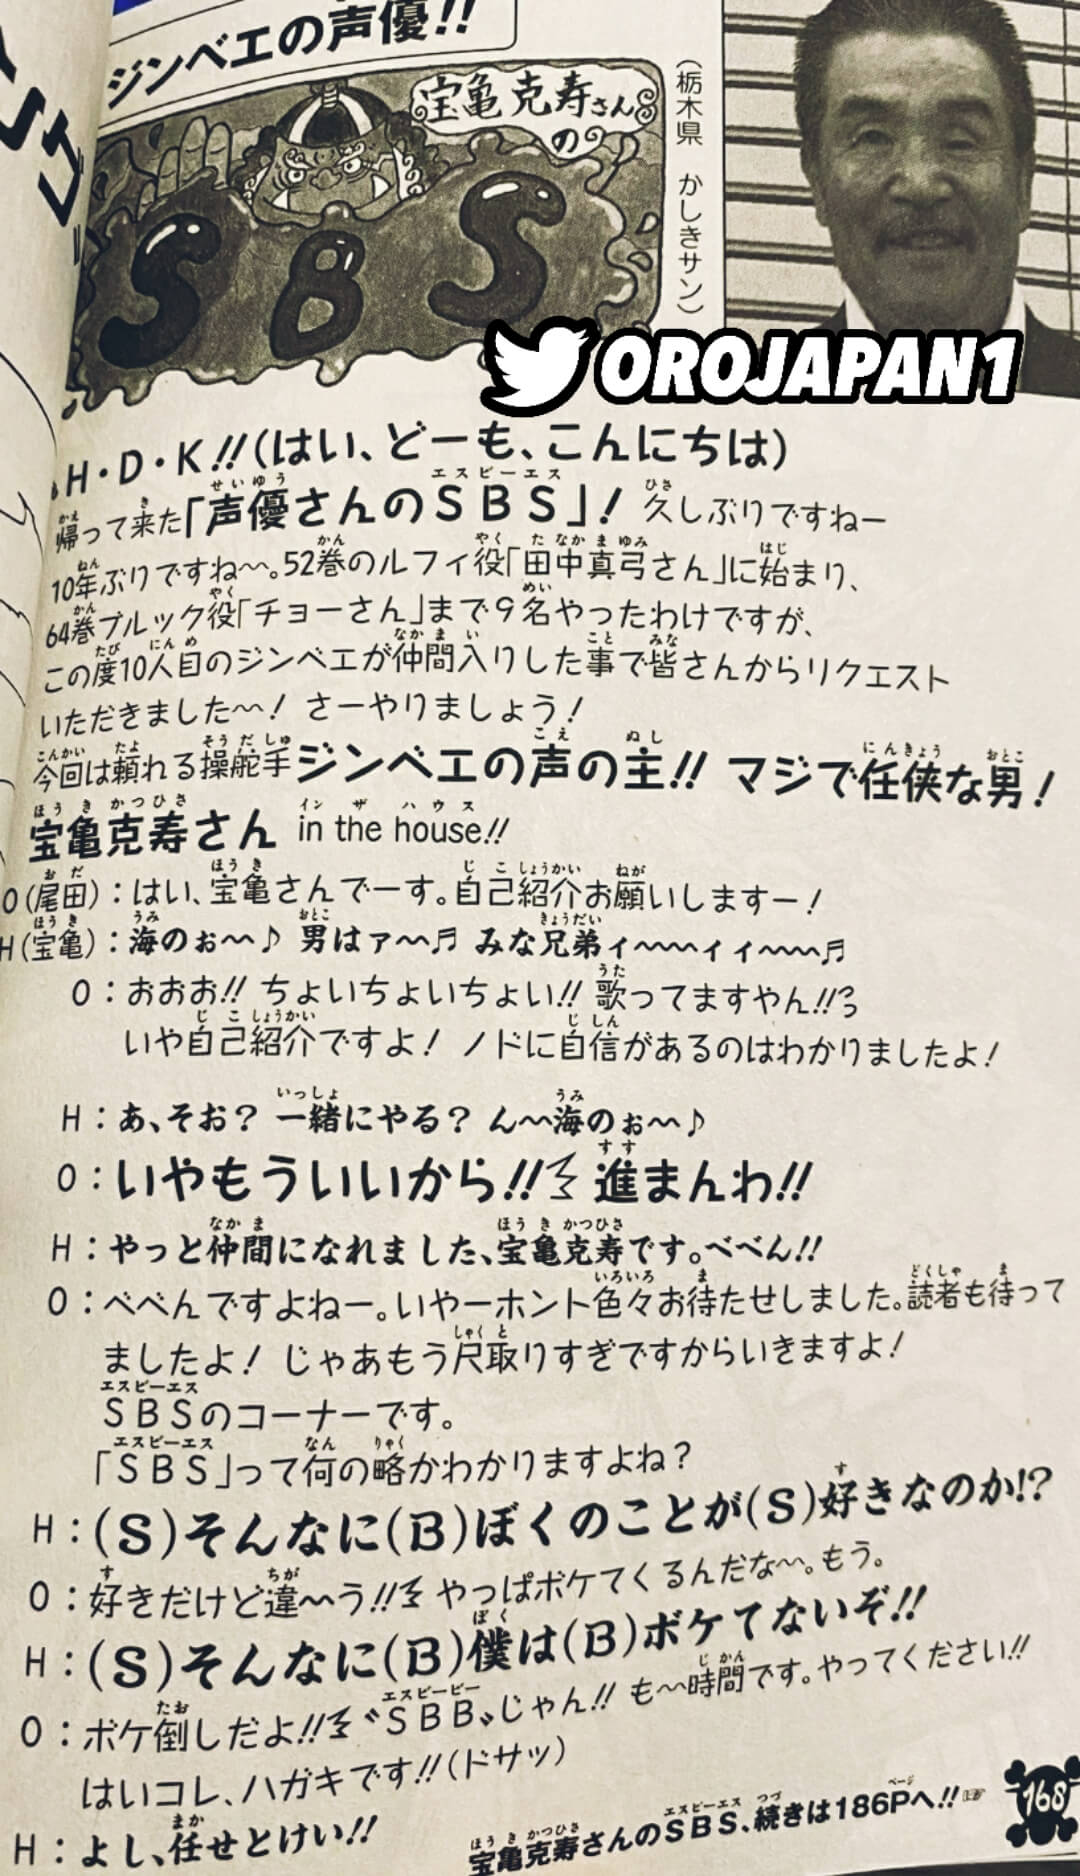 ジンベエの声優!!
宝亀克寿さんの
SBS
(栃木県 かしきサン)
OROJAPAN1
H・D・K!!(はい、どーも、こんにちは)
帰って来た「声優さんのSBS」! 久しぶりですねー
10年ぶりですね〜。52巻のルフィ役「田中真弓さん」に始まり、
64巻ブルック役「チョーさん」まで9名やったわけですが、
この度10人目のジンベエが仲間入りした事で皆さんからリクエスト
いただきました〜! さーやりましょう!
今回は頼れる操舵手ジンベエの声の主!! マジで任侠な男!
宝亀克寿さん in the house!!
O(尾田):はい、宝亀さんでーす。自己紹介お願いしますー!
H(宝亀):海のぉ〜♪ 男はァ〜♬ みな兄弟ィ〜〜ィィ〜〜♬
O:おおお!! ちょいちょいちょい!! 歌ってますやん!!
いや自己紹介ですよ! ノドに自信があるのはわかりましたよ!
H:あ、そお? 一緒にやる? ん〜海のぉ〜♪
O:いやもういいから!! 進まんわ!!
H:やっと仲間になれました、宝亀克寿です。べべん!!
O:べべんですよねー。いやーホント色々お待たせしました。読者も待って
ましたよ! じゃあもう尺取りすぎですからいきますよ!
SBSのコーナーです。
「SBS」って何の略かわかりますよね?
H:(S)そんなに(B)ぼくのことが(S)好きなのか!?
O:好きだけど違〜う!! やっぱボケてくるんだな〜。もう。
H:(S)そんなに(B)僕は(B)ボケてないぞ!!
O:ボケ倒しだよ!! "SBB"じゃん!! も〜時間です。やってください!!
はいコレ、ハガキです!!(ドサッ)
H:よし、任せとけい!!
宝亀克寿さんのSBS、続きは186Pへ!!☞
168